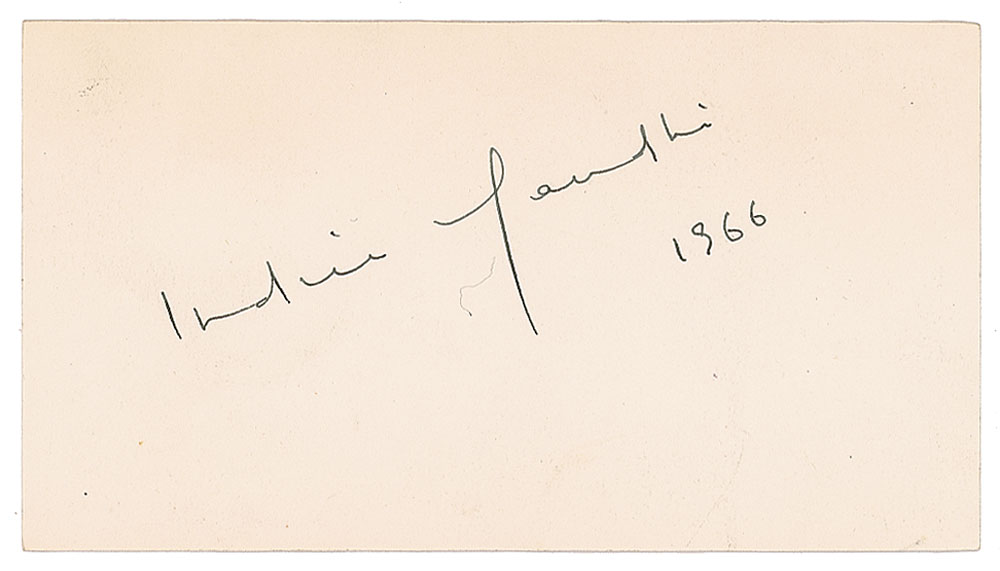 Indira Gandhi
1966